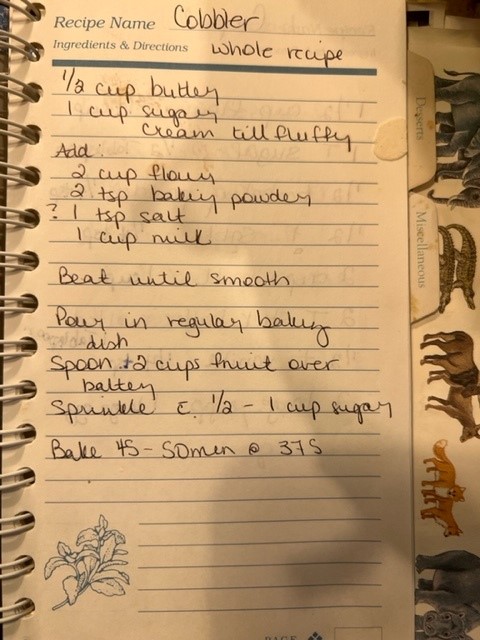 Recipe Name Cobbler
Ingredients & Directions whole recipe
1/2 cup butter
1 cup sugar
cream till fluffy
Add:
2 cup flour
2 tsp baking powder
? 1 tsp salt
1 cup milk
Beat until smooth
Pour in regular baking
dish
Spoon 2 cups fruit over
batter
Sprinkle c. 1/2 - 1 cup sugar
Bake 45 - 50 min @ 375
PAGE
Desserts
Miscellaneous